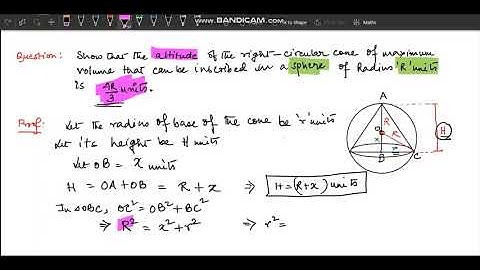 WWW.BANDICAM.COM
Maths
Question: Show that the altitude of the right-circular cone of maximum
volume that can be inscribed in a sphere of Radius 'R' units
is 4R/3 units.
Proof: Let the radius of base of the cone be 'r' units
Let its height be H units
Let OB = x units
H = OA + OB = R + x ⇒ H = (R + x) units
In △OBC, OC² = OB² + BC²
⇒ R² = x² + r² ⇒ r² =
A
O
R
R
x
B
r
C
H